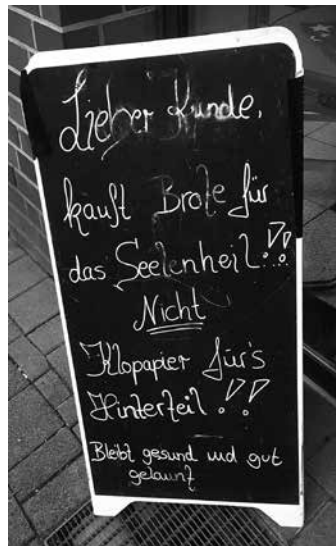 Lieber Kunde,
kauft Brote für
das Seelenheil!!!
Nicht
Klopapier für's
Hinterteil!!
Bleibt gesund und gut
gelaunt